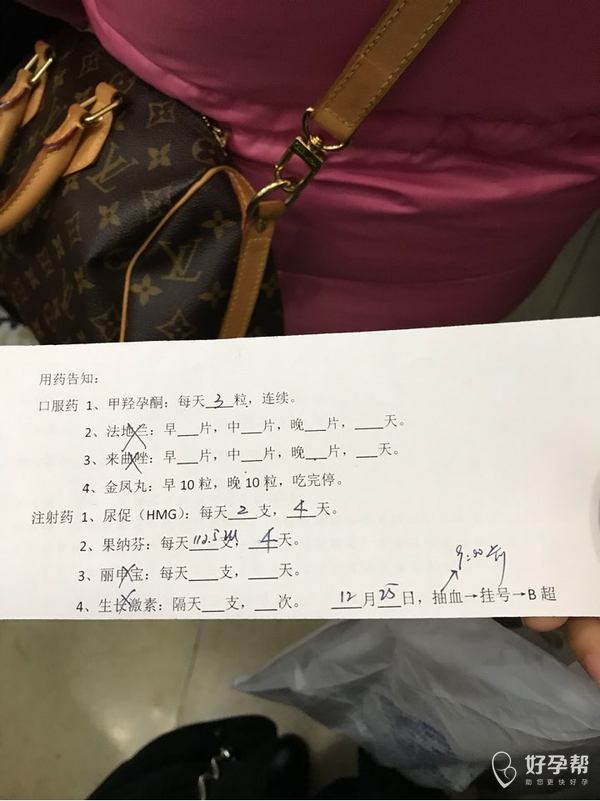 用药告知:
口服药 1、甲羟孕酮:每天 3 粒,连续。
2、法地兰:早___片,中___片,晚___片,___天。
3、来曲唑:早___片,中___片,晚___片,___天。
4、金凤丸:早 10 粒,晚 10 粒,吃完停。
注射药 1、尿促(HMG):每天 2 支, 4 天。
2、果纳芬:每天 112.5 支, 4 天。
3、丽申宝:每天___支,___天。
9:00
4、生长激素:隔天___支,___次。 12 月 25 日,抽血→挂号→B 超
好孕帮
助您更快好孕